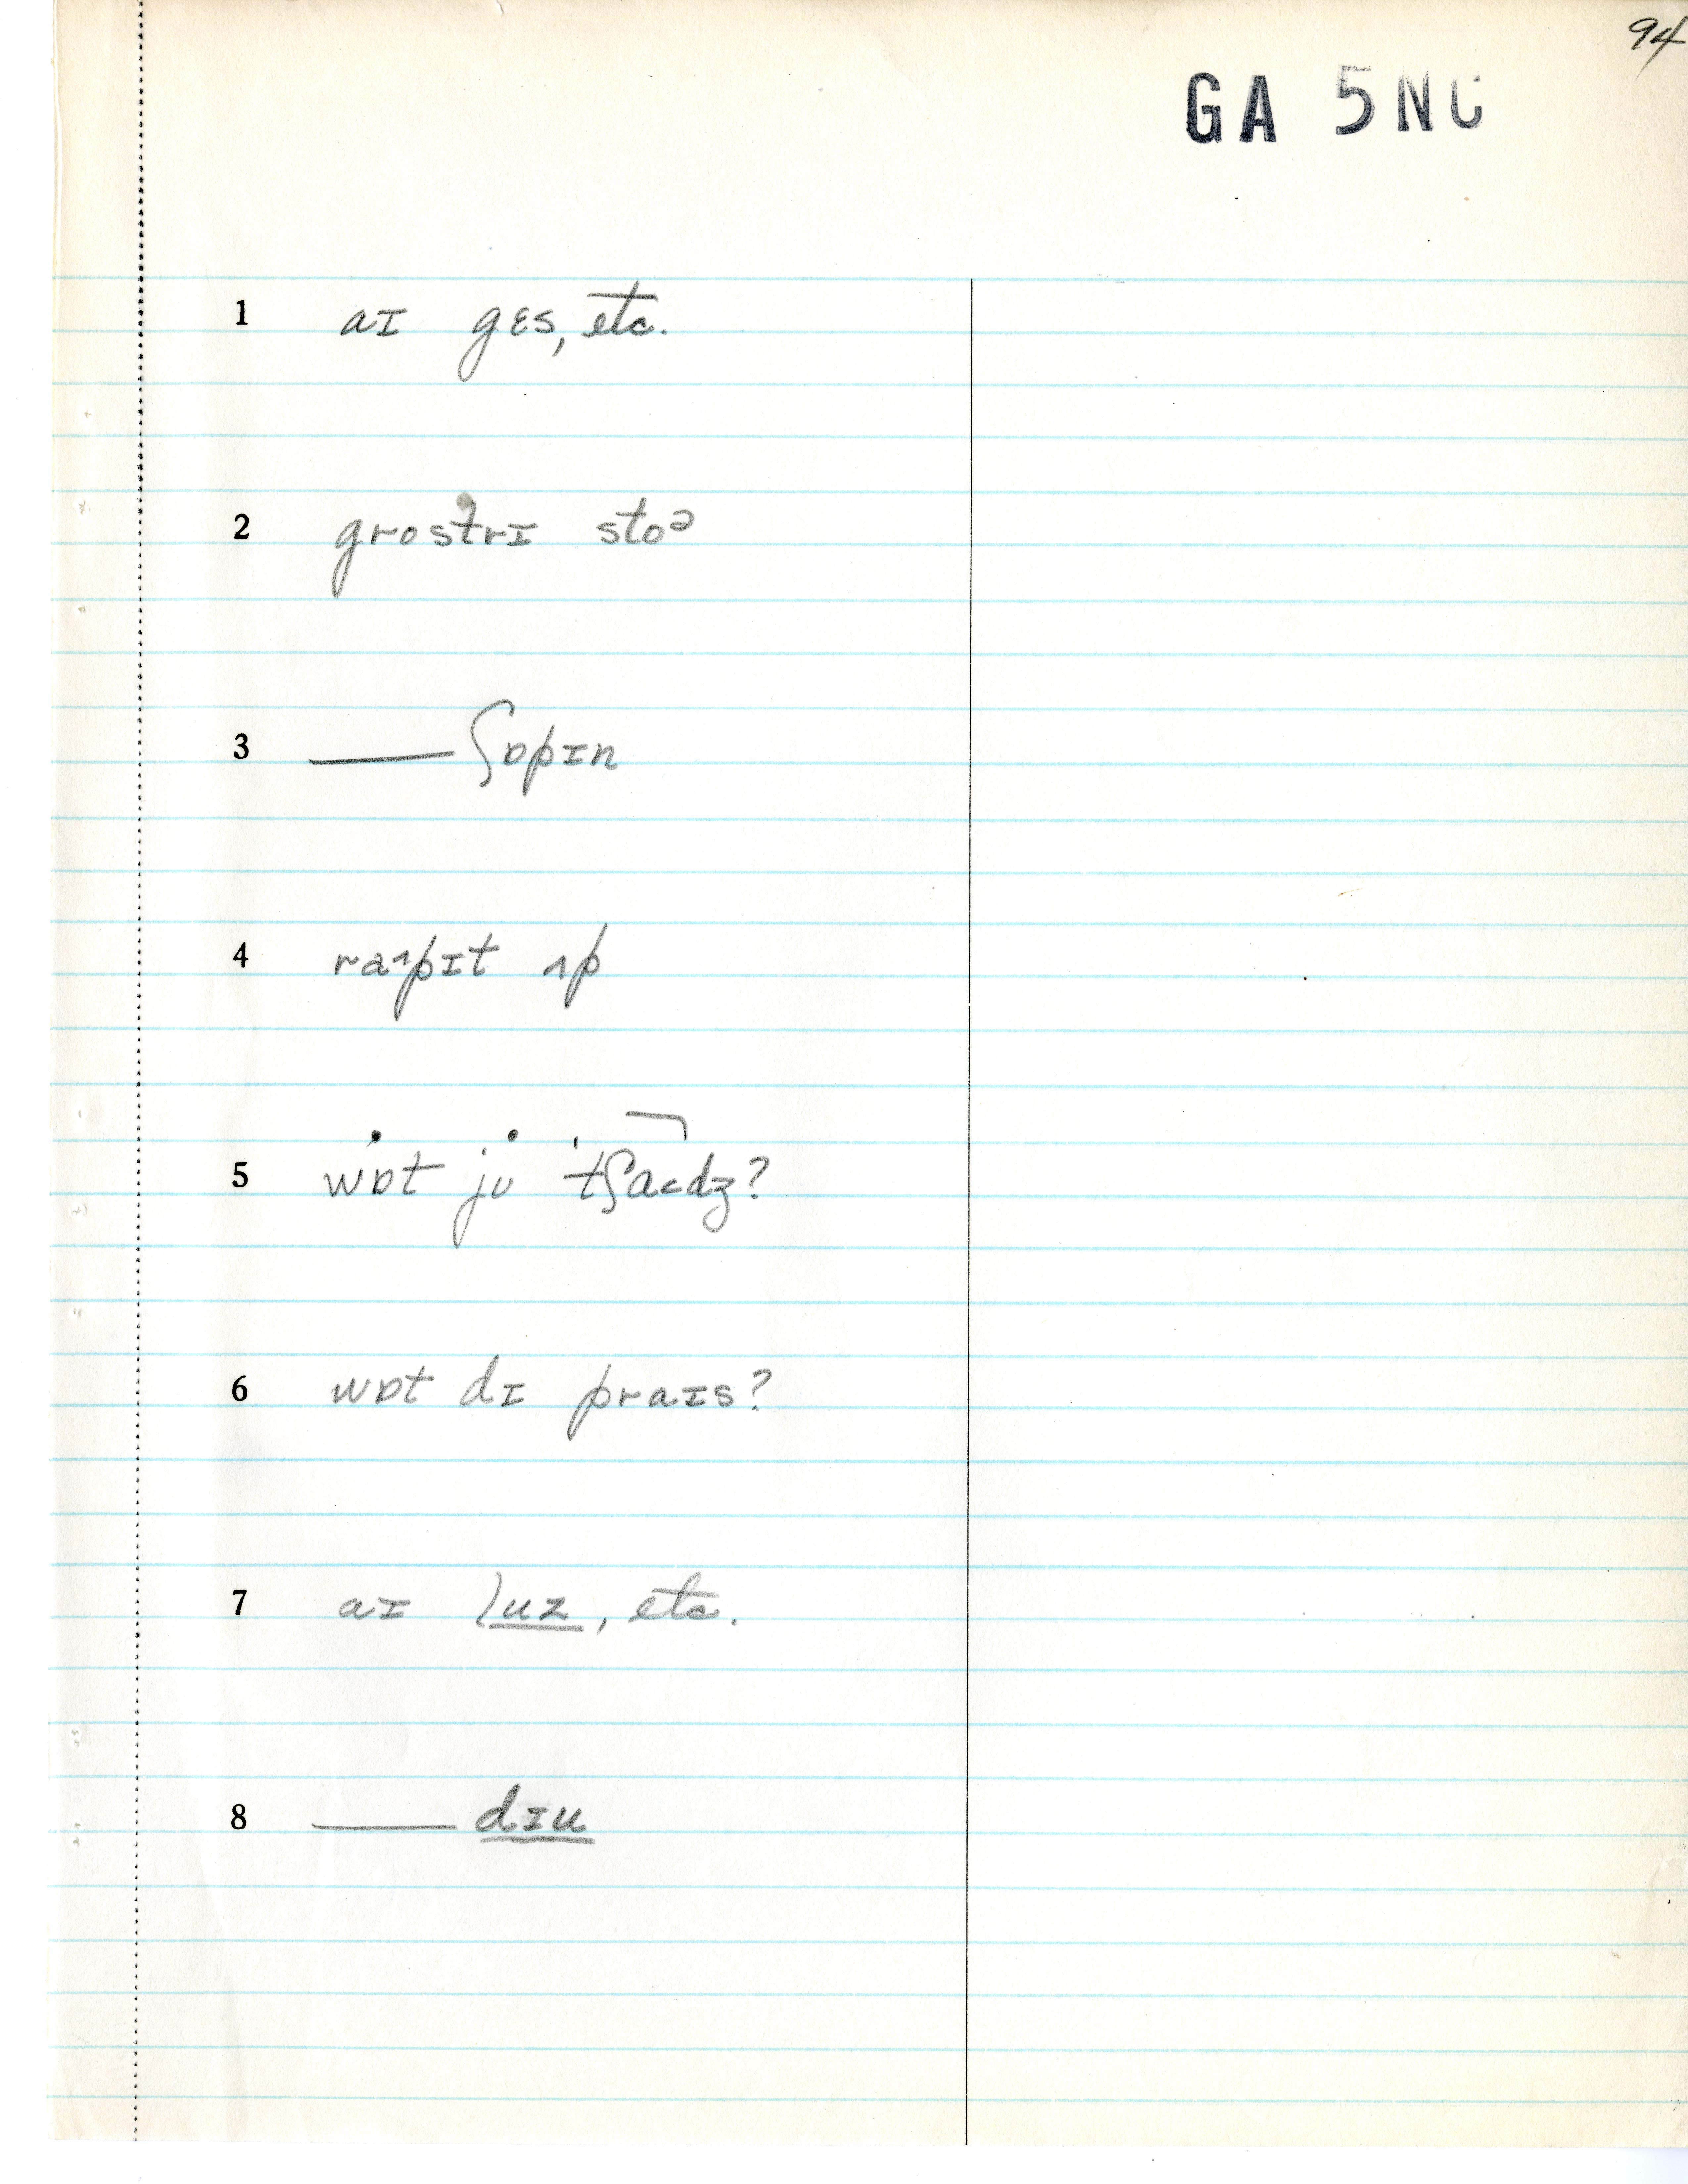 94
GA 5NC
1 aɪ gɛs, etc.
2 grostrɪ stoᵊ
3 —— ʃɒpɪn
4 raʌpɪt ʌp
5 wɒt jʊ 'tʃaɾdʒ?
6 wɒt dɪ praɪs?
7 aɪ luz, etc.
8 —— dɪu